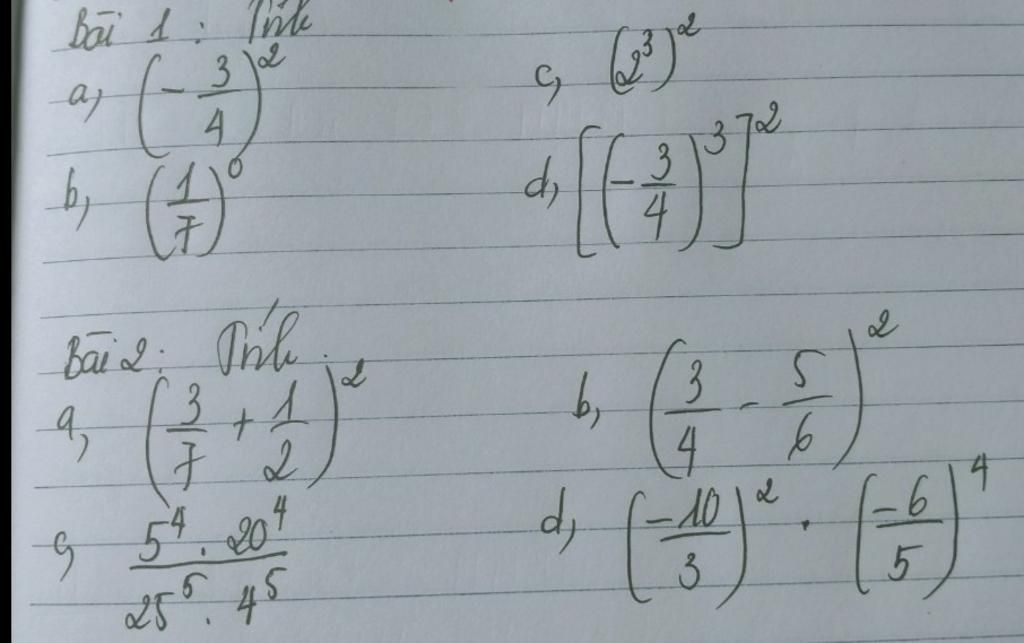 Bài 1 : Tính
a, (- 3/4)^2
c, (2^3)^2
b, (1/7)^0
d, [(- 3/4)^3]^2
Bài 2 : Tính
a, (3/7 + 1/2)^2
b, (3/4 - 5/6)^2
c, (5^4 . 20^4)/(25^5 . 4^5)
d, (-10/3)^2 . (-6/5)^4